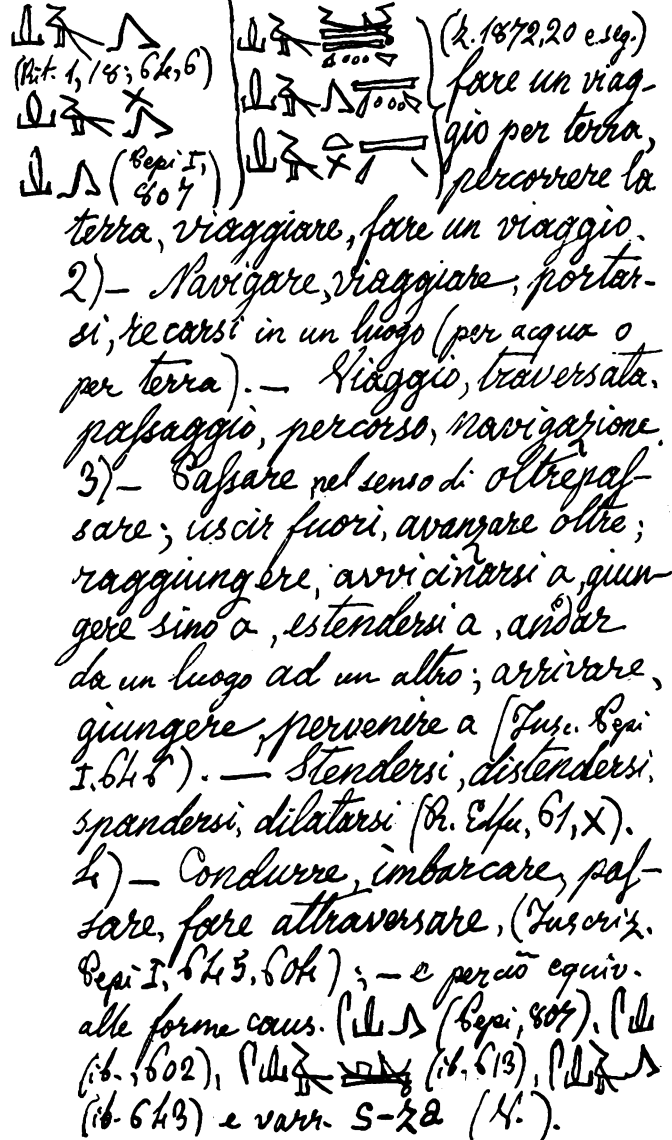 (Rit. 1, 18; 64, 6)
(Pepi I, 807)
(Z. 1872, 20 e seg.)
fare un viag-
gio per terra,
percorrere la
terra, viaggiare, fare un viaggio.
2)— Navigare, viaggiare, portar-
si, recarsi in un luogo (per acqua o
per terra). — Viaggio, traversata,
passaggio, percorso, navigazione.
3)— Passare nel senso di oltrepas-
sare; uscir fuori, avanzare oltre;
raggiungere, avvicinarsi a, giun-
gere sino a, estendersi a, andar
da un luogo ad un altro; arrivare,
giungere, pervenire a (Insc. Pepi
I. 646). — Stendersi, distendersi,
spandersi, dilatarsi (R. Edfu, 61, X).
4)— Condurre, imbarcare, pas-
sare, fare attraversare, (Inscriz.
Pepi I, 645, 604); — e perciò equiv.
alle forme caus. (Pepi, 807),
(ib., 602), (ib. 613),
(ib. 643) e varr. S-za (V.).